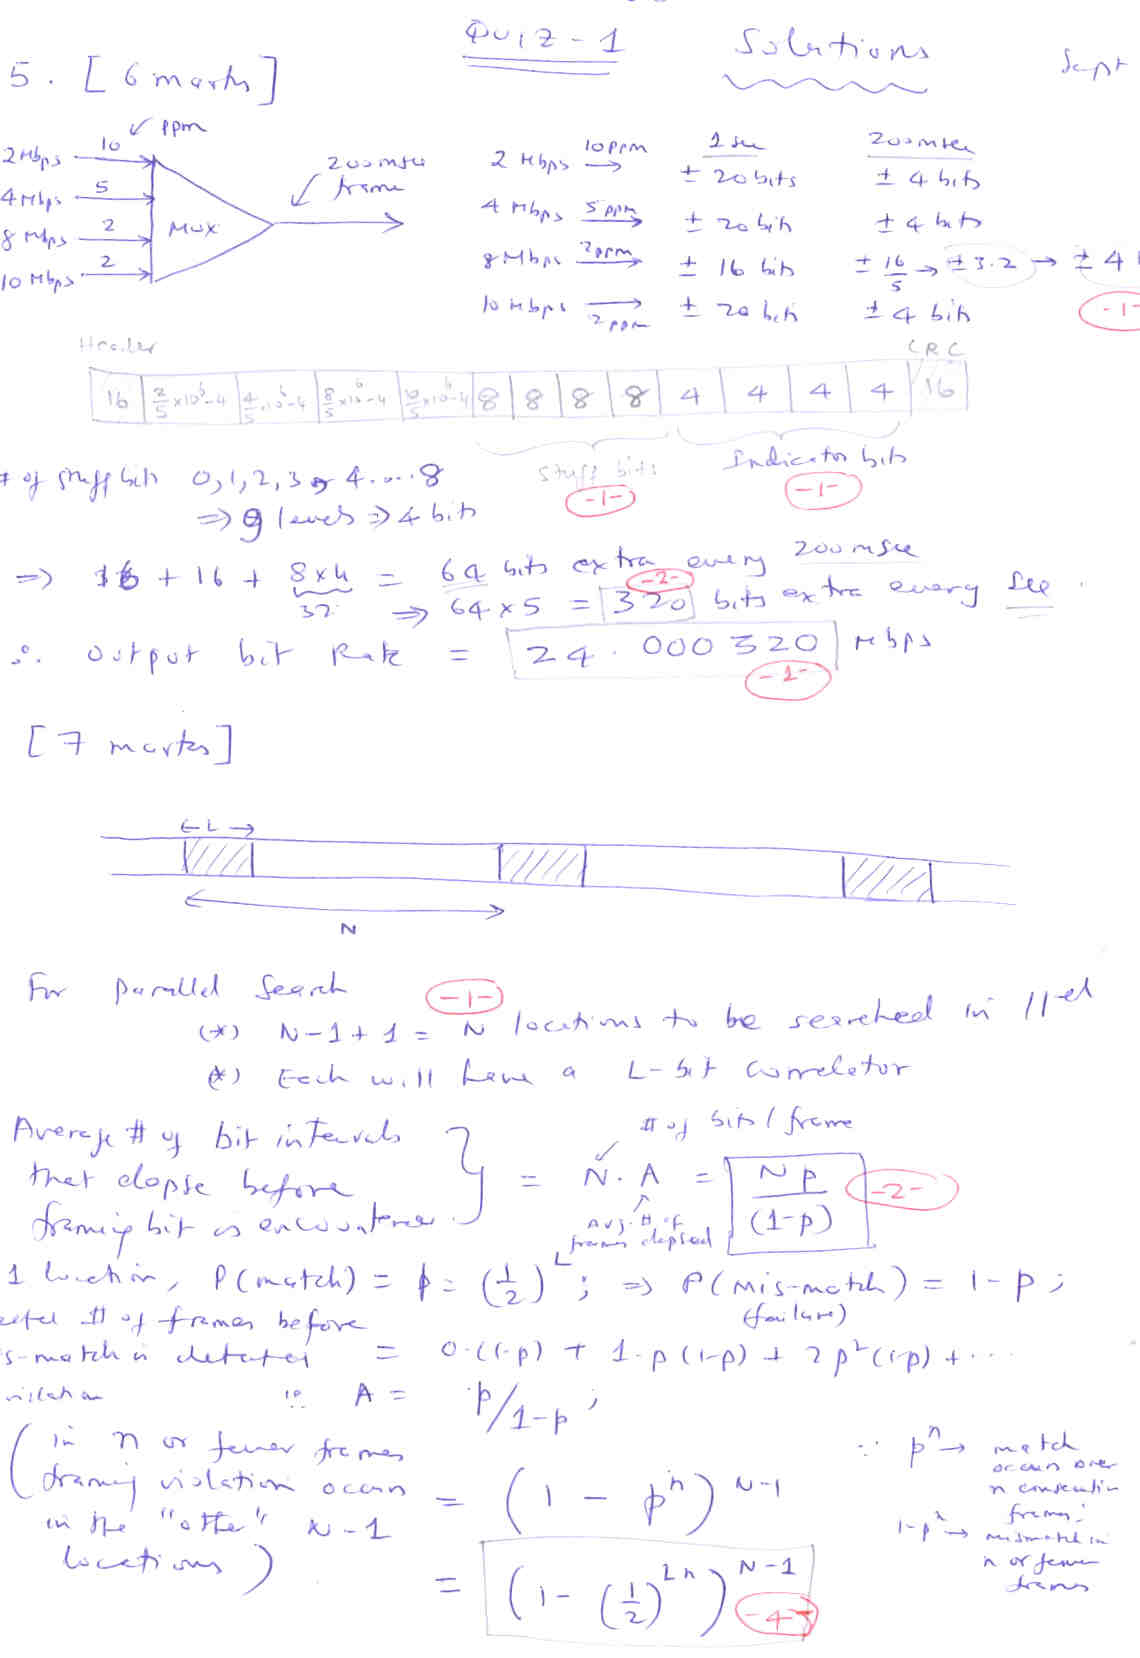 QUIZ-1 Solutions Sept
5. [6 marks]
✓ ppm
2 Mbps 10
4 Mbps 5
8 Mbps 2
10 Mbps 2
MUX
200 msec
frame
1 sec 200 msec
2 Mbps 10 ppm → ± 20 bits ± 4 bits
4 Mbps 5 ppm → ± 20 bits ± 4 bits
8 Mbps 2 ppm → ± 16 bits ± 16/5 → ± 3.2 → ± 4
-1-
10 Mbps → 2 ppm ± 20 bits ± 4 bits
Header CRC
16 2/5 ×10⁶-4 4/5 ×10⁶-4 8/5 ×10⁶-4 10/5 ×10⁶-4 8 8 8 8 4 4 4 4 16
Stuff bits Indicator bits
-1- -1-
# of stuff bits 0, 1, 2, 3, 4 .... 8
⇒ 9 levels ⇒ 4 bits
⇒ 16 + 16 + 8×4 = 64 bits extra every 200 msec
32
-2-
⇒ 64 × 5 = 320 bits extra every sec.
∴ Output bit Rate = 24.000320 Mbps
-1-
[7 marks]
← L →
N
For parallel Search
-1-
(*) N-1+1 = N locations to be searched in ||el
(*) Each will have a L-bit correlator
Average # of bit intervals
that elapse before
framing bit is encountered
# of bits / frame
= N. A = Np/(1-p) -2-
Avg. # of
frames elapsed
1 location, P(match) = p = (1/2)^L ; ⇒ P(mis-match) = 1-p ;
(failure)
# of frames before
s-match is detected = 0.(1-p) + 1.p(1-p) + 2p²(1-p) + ...
violation ∴ A = p/1-p ;
(in n or fewer frames
framing violation occurs
in the "other" N-1
locations)
= (1 - pⁿ)^N-1
∵ pⁿ → match
occurs over
n consecutive
frames;
1-pⁿ → mismatch in
n or fewer
frames
= (1 - (1/2)^Ln)^N-1
-4-